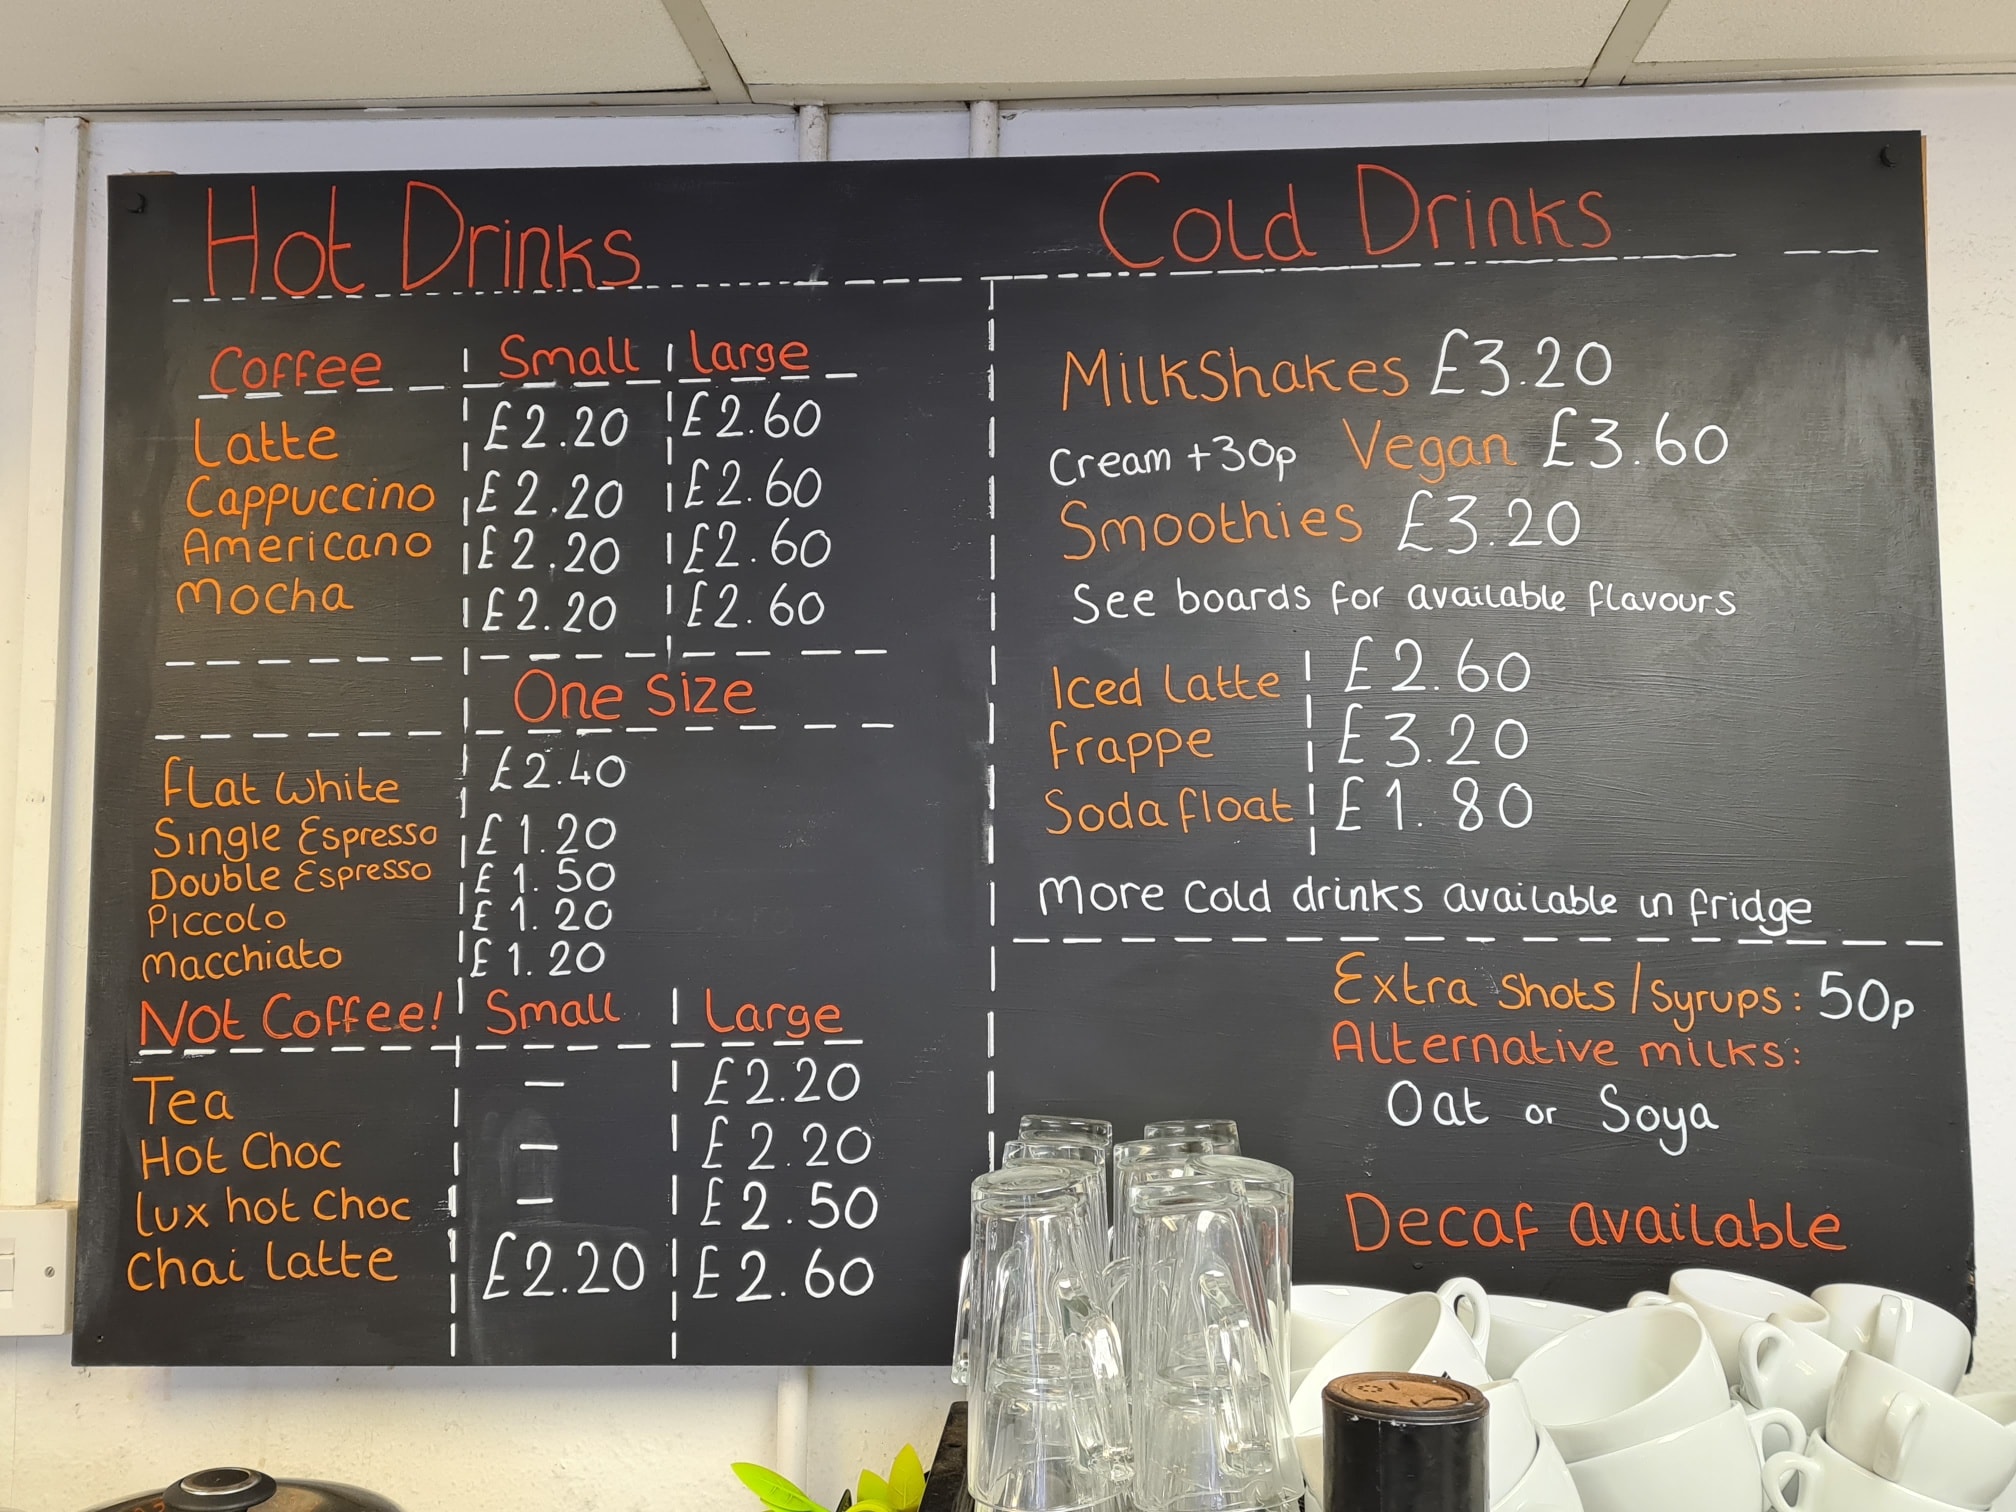 Hot Drinks
Coffee Small Large
Latte £2.20 £2.60
Cappuccino £2.20 £2.60
Americano £2.20 £2.60
Mocha £2.20 £2.60
One Size
Flat White £2.40
Single Espresso £1.20
Double Espresso £1.50
Piccolo £1.20
Macchiato £1.20
Not Coffee! Small Large
Tea — £2.20
Hot Choc — £2.20
Lux hot Choc — £2.50
Chai Latte £2.20 £2.60
Cold Drinks
Milkshakes £3.20
Cream +30p Vegan £3.60
Smoothies £3.20
See boards for available flavours
Iced Latte £2.60
Frappe £3.20
Soda float £1.80
More cold drinks available in fridge
Extra Shots/Syrups: 50p
Alternative milks:
Oat or Soya
Decaf available